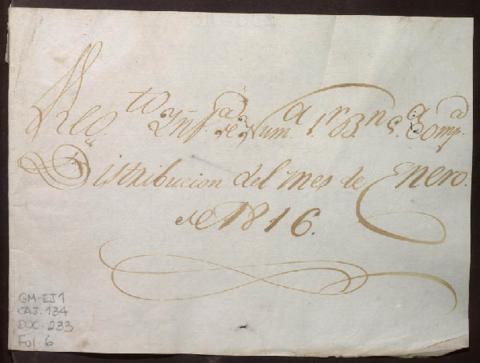 Reg.to Ynf.a de Num.a 1.r B.n 5.a Comp.a
Distribucion del mes de Enero.
de 1816.
GM-EJ1
CAJ. 134
DOC. 233
Fol 6